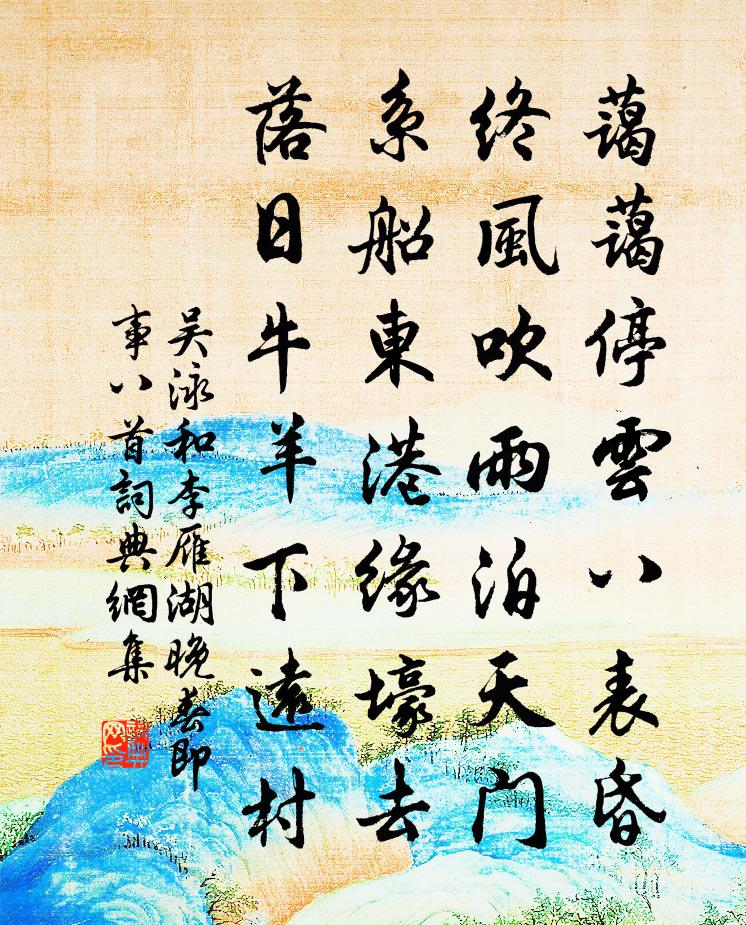 藹藹停雲八表昏
終風吹雨泊天門
系船東港緣壕去
落日牛羊下遠村
吴泳和李雁湖晚春即
事八首詞典網集